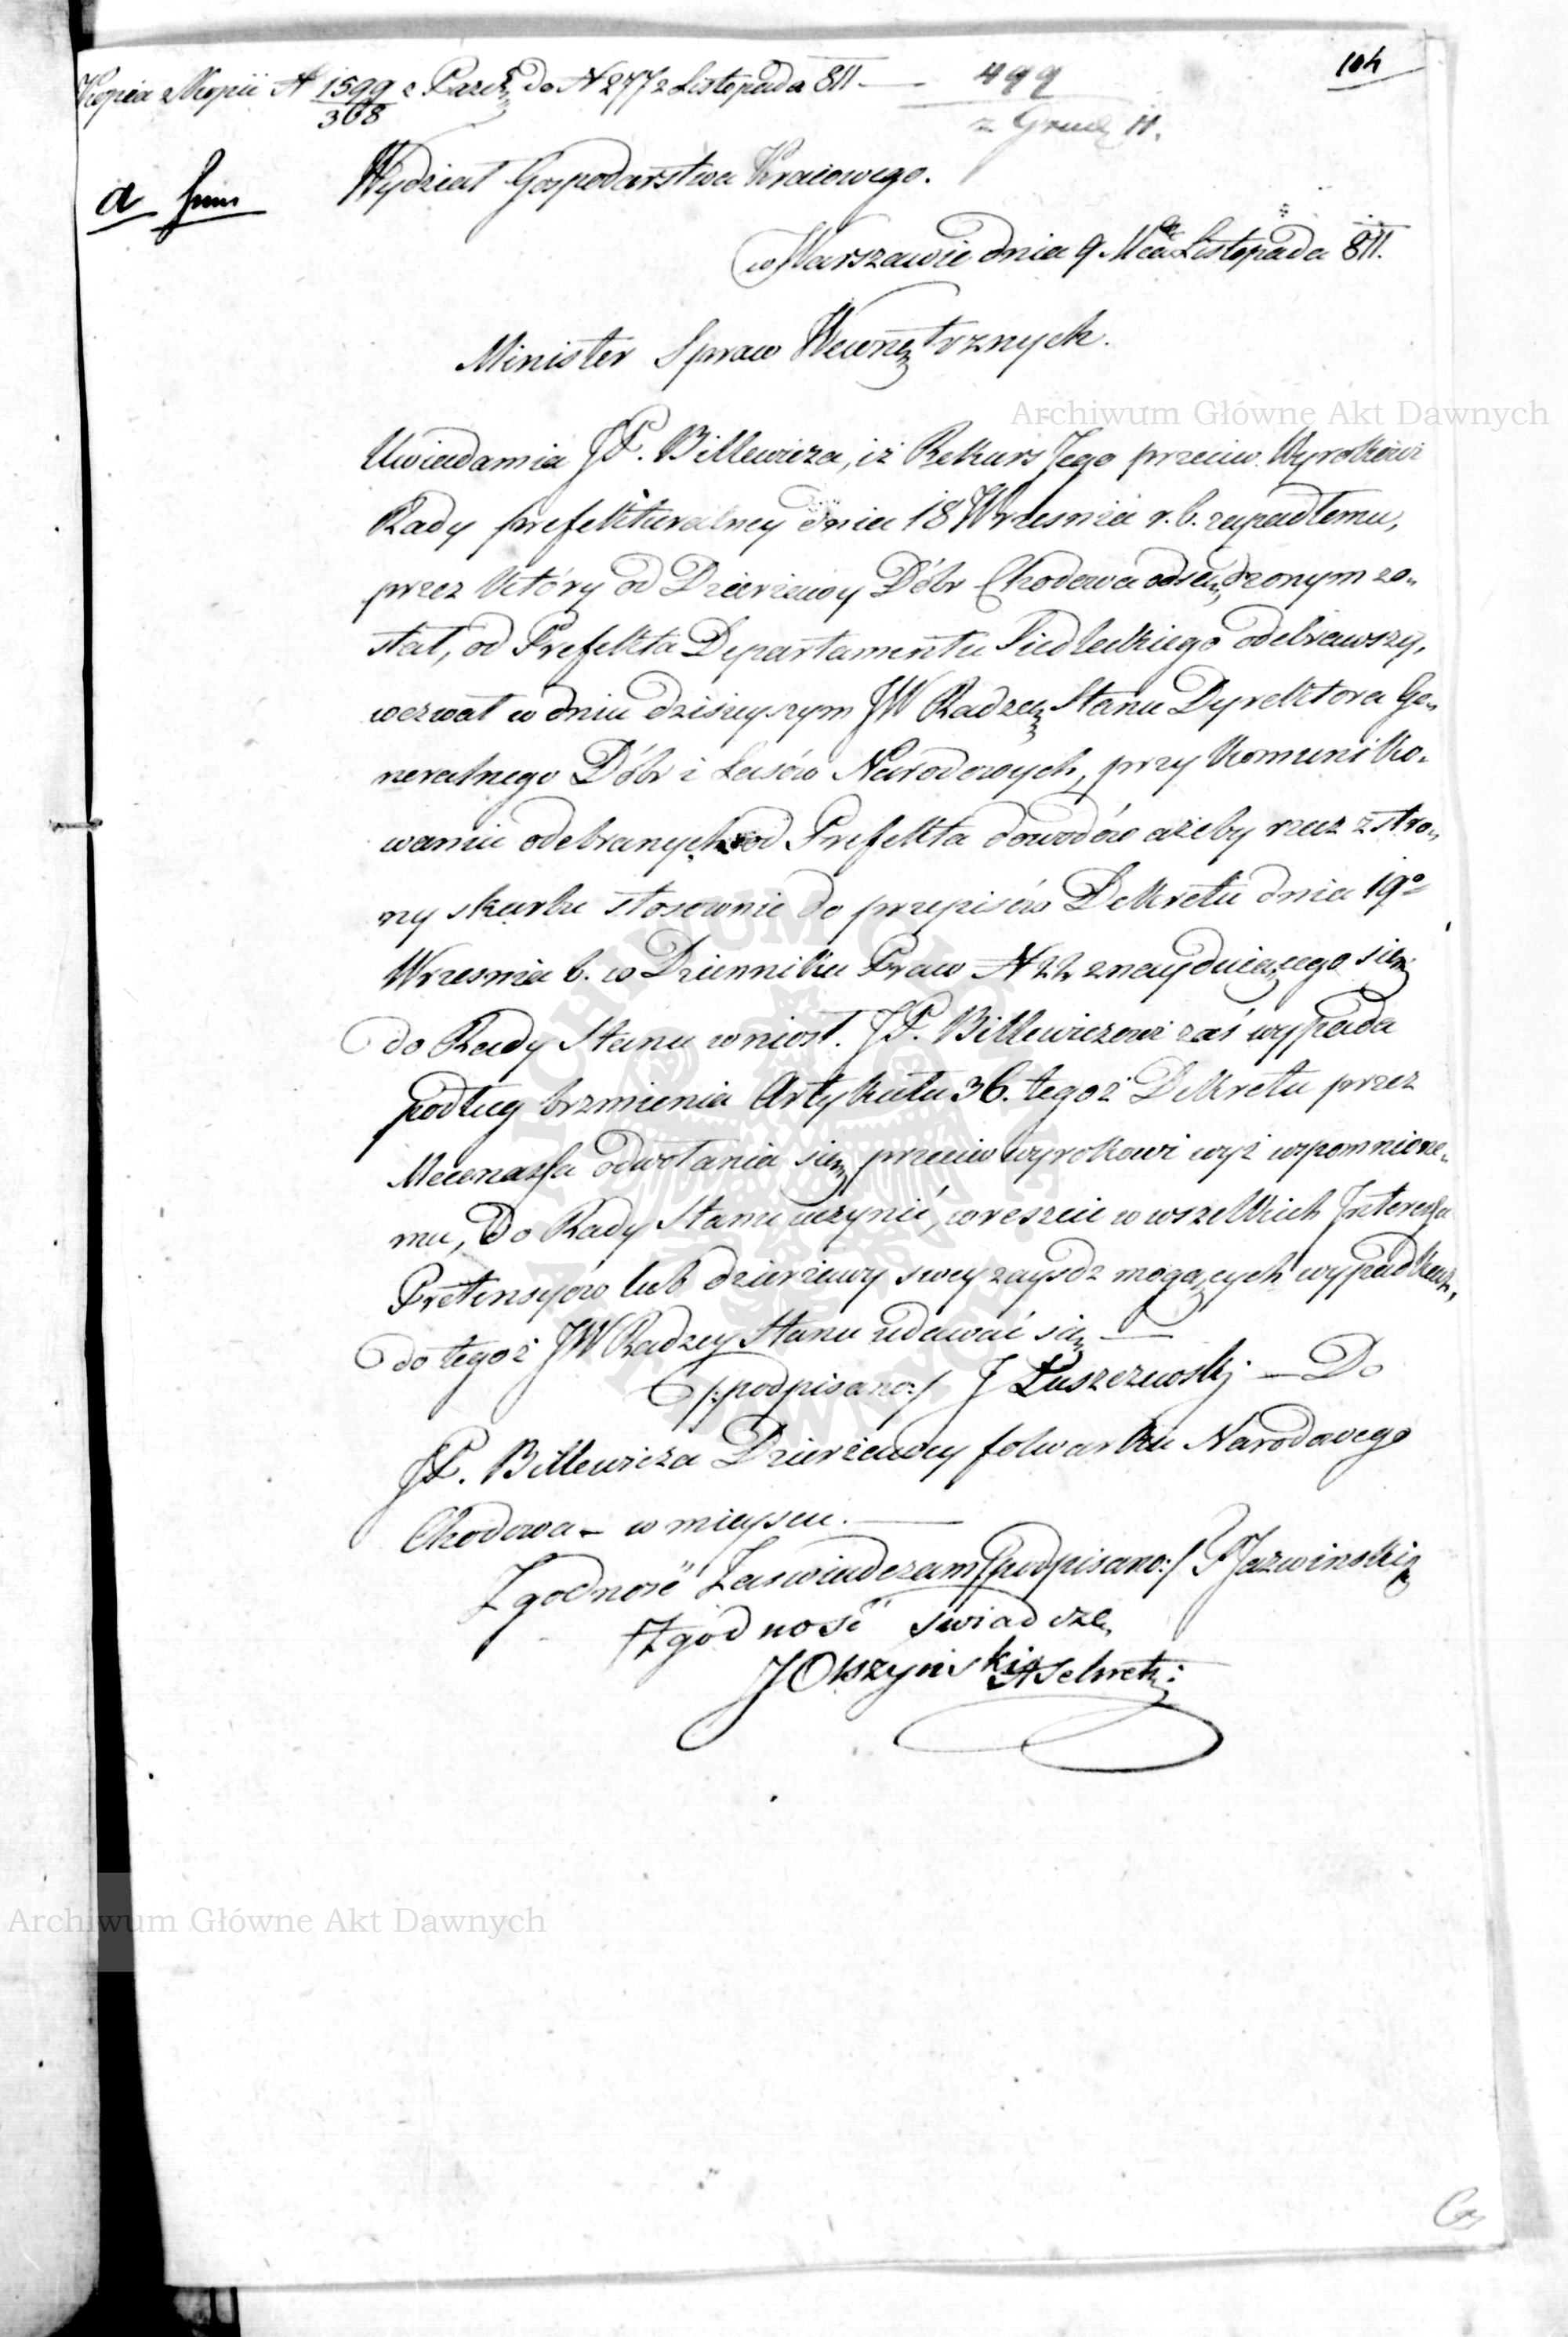 104
Kopia z Kopii N 1599 z Paźdź. do N 277 z Listopada 811.— 499
368
z Grud. 11.
a
Wydział Gospodarstwa Kraiowego.
w Warszawie dnia 9 Mca Listopada 811.
Minister Spraw Wewnętrznych.
Archiwum Główne Akt Dawnych
Uwiadamia JP. Billewicza, iż Rekurs Jego przeciw Wyrokowi
Rady prefekturalney dnia 18 Wrzesnia r. b. zapadłemu,
przez który od Dzierżawy Dóbr Chodowa odsądzonym zo„
stał, od Prefekta Departamentu Siedleckiego odebrawszy,
wezwał w dniu dzisieyszym JW Radzcę Stanu Dyrektora Ge„
neralnego Dóbr i Lasów Narodowych, przy kommuniko„
waniu odebranych od Prefekta dowodów ażeby rzecz z stro„
ny skarbu stosownie do przepisów Dekretu dnia 19º
Wrzesnia b. w Dzienniku Praw N 22 znayduiącego się
do Rady Stanu wniosł. JP. Billewiczowi zaś wypada
podług brzmienia Artykułu 36. tegoż Dekretu przez
Mecenassa odwołania się przeciw wyrokowi wyż wspomnione„
mu, do Rady Stanu uczynić, wreszcie w wszelkich Interessa
Pretensyów lub dzierżawy swey zayśdź mogących wypadkach,
do tegoż JW Radzcy Stanu udawać się —
/:podpisano:/ J Łuszczewski — Do
JP. Billewicza Dzierżawcy folwarku Narodowego
Chodowa — w mieyscu. —
Zgodność Zaswiadczam /:podpisano:/ P Jazwinski
Zgodność swiadczę
J Olszyński Sekret:
Archiwum Główne Akt Dawnych